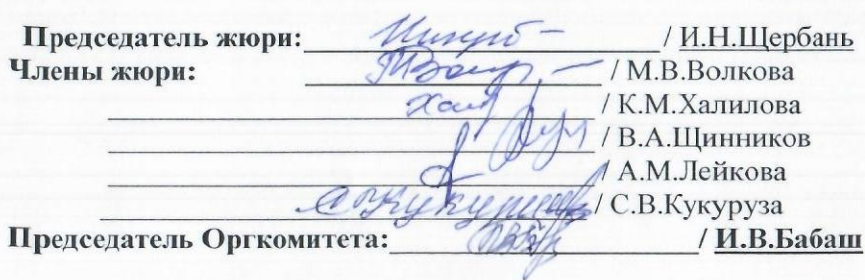 Председатель жюри: / И.Н.Щербань
Члены жюри: / М.В.Волкова
/ К.М.Халилова
/ В.А.Щинников
/ А.М.Лейкова
/ С.В.Кукуруза
Председатель Оргкомитета: / И.В.Бабаш